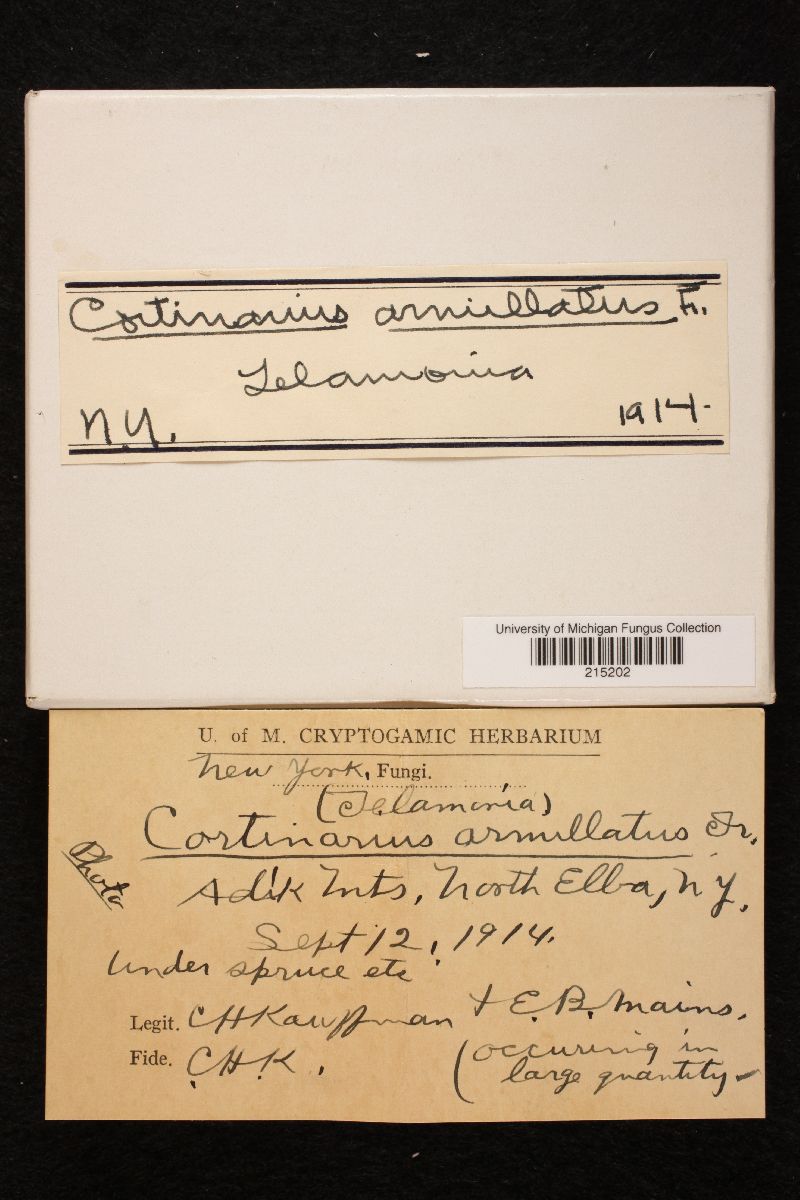 Cortinarius armillatus Fr.
Telamonia
N.Y. 1914.
University of Michigan Fungus Collection
215202
U. of M. CRYPTOGAMIC HERBARIUM
New York, Fungi.
(Telamonia)
Cortinarius armillatus Fr.
Photo
Adik Mts, North Elba, N.Y.
Sept 12, 1914.
Under spruce etc.
Legit. CHKauffman + E.B. Mains.
Fide. C.H.K. (occuring in
large quantity-